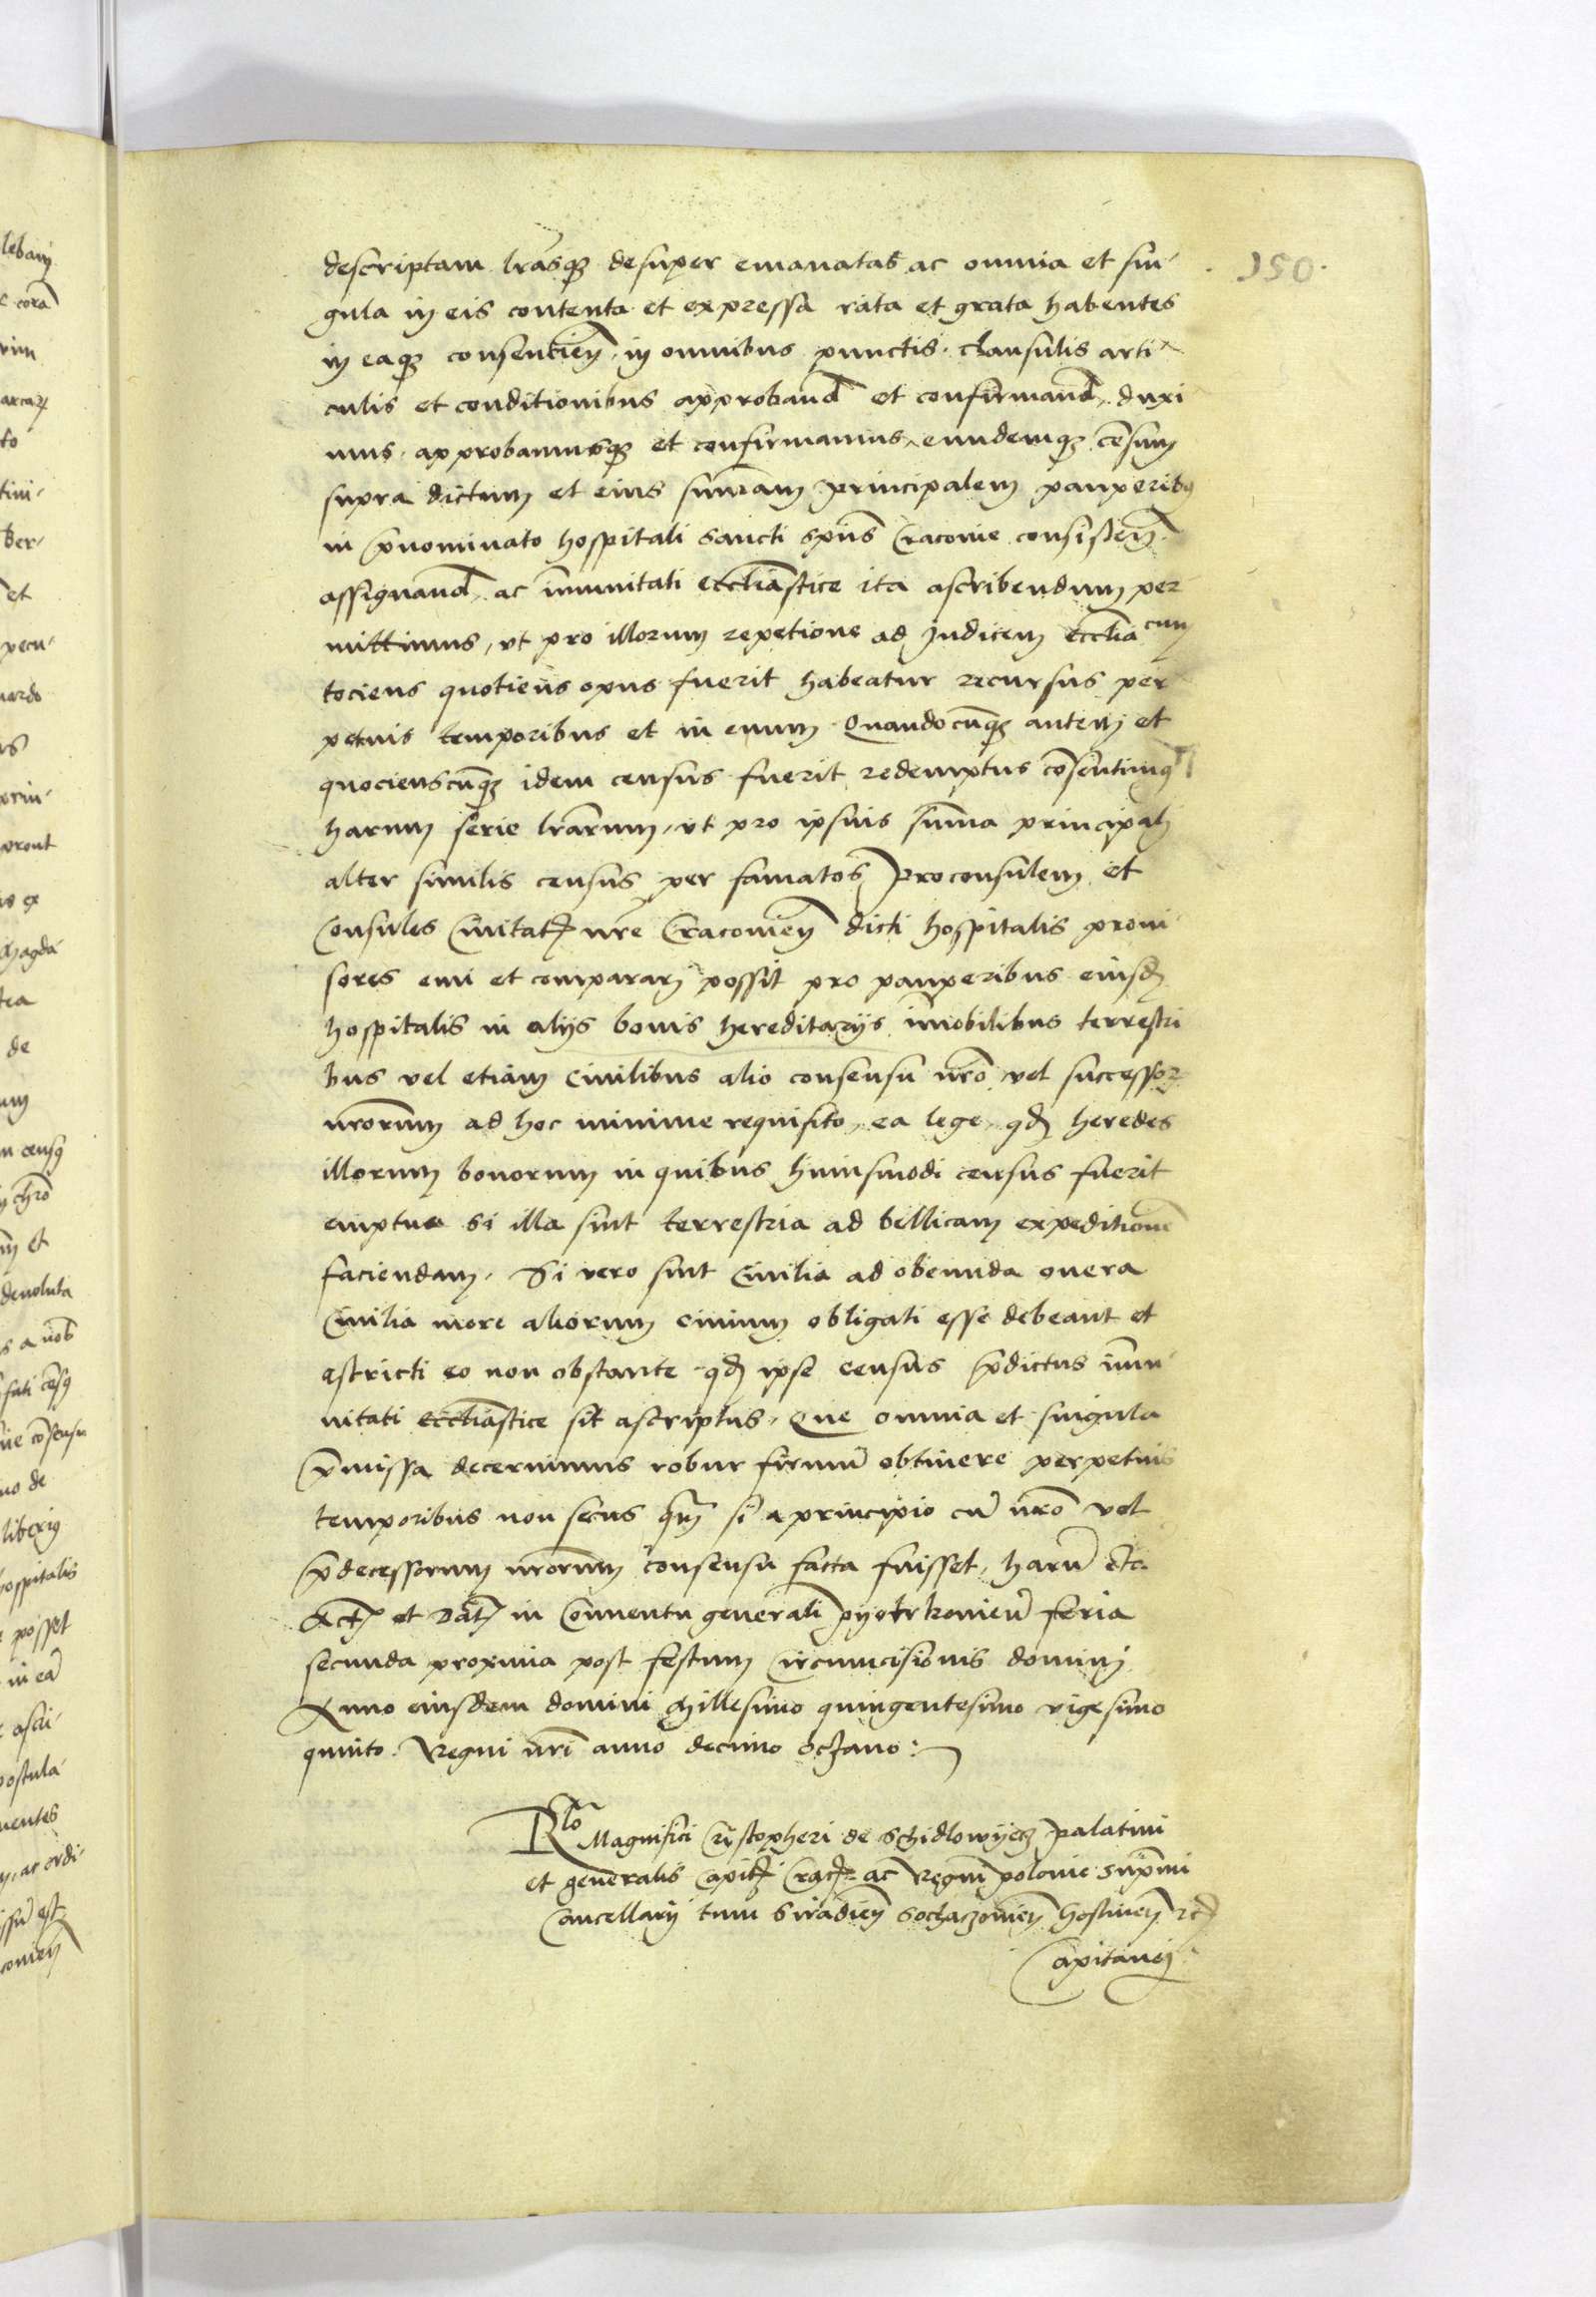 descriptam lrãsq desuper emanatas ac omnia et sin-
gula in eis contenta et expressa rata et grata habentes
in eaq consentien̄ in omnibus punctis clausulis arti-
culis et conditionibus approband̄ et confirmand̄ duxi
mus approbamusq et confirmamus eundemq cēsum
supra dictum et eius summam principalem pauperibꝯ
in p̄nominato hospitali sancti sp̄us Cracovie consisten̄
assignand̄ ac im̄unitati eccl̄iastice ita ascribendum per
mittimus, ut pro illorum repetione ad Judicem eccl̄iacum
tociens quotiens opus fuerit habeatur recursus per
petuis temporibus et in evum Quandocūq autem et
quocienscūq idem census fuerit redemptus cōsentimꝯ
harum serie lr̄arum, ut pro ipsius sum̄a principali
alter similis census per famatos proconsulem et
Consules Civitatꝭ nr̄e Cracovien̄ dicti hospitalis provi
sores emi et comparari possit pro pauperibus eiusd̄
hospitalis in alijs bonis hereditarijs im̄obilibus terrestri
bus vel etiam Civilibus alio consensu nr̄o vel successoꝝ
nr̄orum ad hoc minime requisito, ea lege qd̄ heredes
illorum bonorum in quibus huiusmodi census fuerit
emptus si illa sint terrestria ad bellicam expeditionē
faciendam, Si vero sint Civilia ad obeunda onera
Civilia more aliorum civium obligati esse debeant et
astricti eo non obstante qd̄ ipse census p̄dictus im̄u
nitati eccl̄iastice sit ascriptus, Que omnia et singula
p̄missa decernimus robur firmū obtinere perpetuis
temporibus non secus qm̄ si a principio cū nr̄o vel
p̄decessorum nr̄orum consensu facta fuisset, harū etc
Actꝭ et Datꝭ in Conventu generali pyotrkovien̄ feria
secunda proxima post festum Circumcisionis domini
Anno eiusdem domini Millesimo quingentesimo vigesimo
quinto. Regni nr̄i anno decimo octavo:
150.
Rlō Magnifici Cristopheri de Schidlowyecz palatini
et generalis Capitꝭ Cracꝭ ac Regni polonie sup̄mi
Cancellarij tum Siradien̄ Sochaczovien̄ Gostinen̄ etc
Capitanei